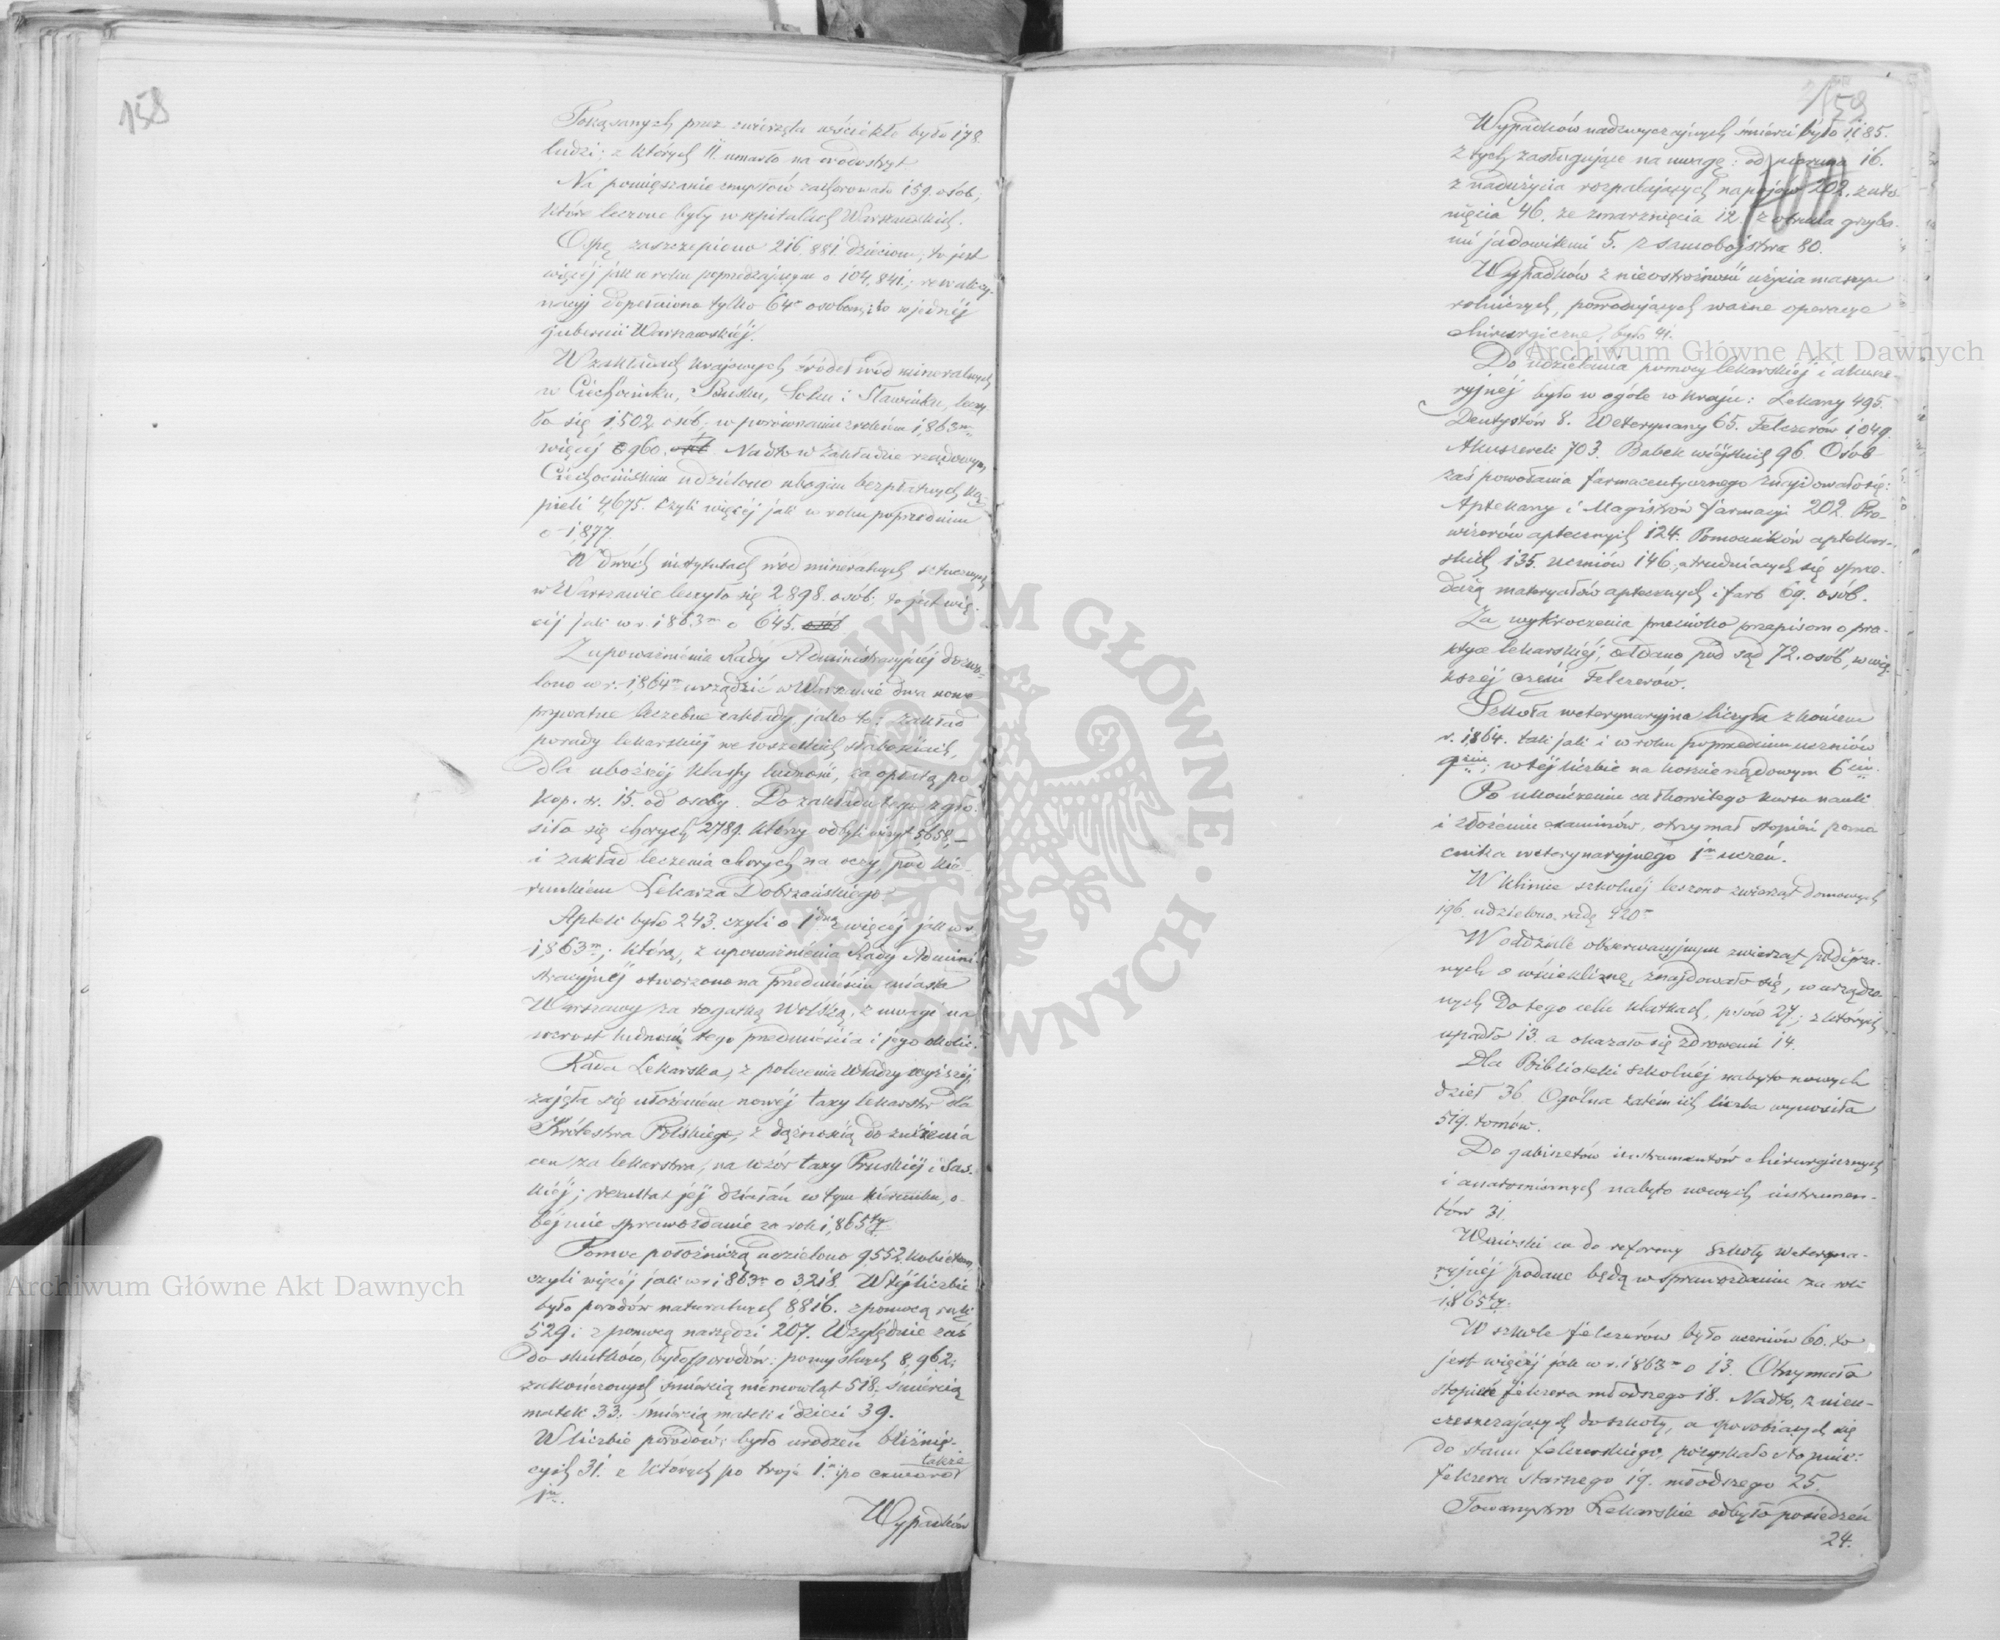 158
Pokąsanych przez zwierzęta wściekłe było 178.
ludzi; z których 11. umarło na wodowstręt.
Na pomięszanie zmysłów zachorowało 159. osób,
które leczone były w szpitalach Warszawskich.
Ospę zaszczepiono 216,881. dzieciom, to jest
więcéj jak w roku poprzedzającym o 104,841.; rewakcy-
nacyj dopełniono tylko 64m osobom, i to w jednéj
gubernii Warszawskiéj.
W zakładach krajowych źródeł wód mineralnych
w Ciechocinku, Busku, Solcu i Sławinku, leczy-
ło się 1,502. osób; w porównaniu z rokiem 1,863m
więcéj o 960. Nadto w Zakładzie rządowym
Ciechocińskim udzielono ubogim bezpłatnych ką-
pieli 4,675. czyli więcéj jak w roku poprzednim
o 1,877.
W dwóch instytutach wód mineralnych sztucznych
w Warszawie leczyło się 2898. osób; to jest wię-
céj jak w r. 1863m o 645. osób
Z upoważnienia Rady Administracyjnéj dozwo-
lono w r. 1,864m urządzić w Warszawie dwa nowe
prywatne leczebne zakłady jako to: zakład
porady lekarskiéj we wszelkich słabościach,
dla uboższéj klassy ludności, za opłatą po
kop. sr. 15. od osoby. Do zakładu tego zgło-
siło się chorych 2789. którzy odbyli wizyt 5,658,—
i zakład leczenia chorych na oczy, pod kie-
runkiem Lekarza Dobrzańskiego.
Aptek było 243. czyli o 1dną więcéj jak w r.
1,863m; którą, z upoważnienia Rady Admini-
stracyjnéj otworzono na przedmieściu miasta
Warszawy za rogatką Wolską, z uwagi na
wzrost ludności tego przedmieścia i jego okolic.
Rada Lekarska, z polecenia Władzy wyższéj,
zajęła się ułożeniem nowéj taxy lekarstw dla
Królestwa Polskiego, z dążnością do zniżenia
cen za lekarstwa, na wzór taxy Pruskiéj i Sas-
kiéj; rezultat jéj działań w tym kierunku, o-
bejmie sprawozdanie za rok 1,865ty.
Pomoc położniczą udzielono 9,552. kobietom,
czyli więcéj jak w r. 1863m o 3,218. W téj liczbie
było porodów naturalnych 8816. z pomocą ręki
529; z pomocą narzędzi 207. Względnie zaś
do skutków, było porodów: pomyślnych 8,962;
zakończonych śmiercią niemowląt 518; śmiercią
matek 33; śmiercią matek i dzieci 39.
W liczbie porodów; było urodzeń bliźnię-
cych 31. z których po troje 1.n i po czworo także
1m.
Wypadków
159
Wypadków nadzwyczajnych śmierci było 1185.
z tych zasługujące na uwagę: od pioruna 16.
z nadużycia rozpalających napojów 202. z uto-
nięcia 46. ze zmarznięcia 12. z otrucia grzyba-
mi jadowitemi 5. z samobójstwa 80.
Wypadków z nieostrożności użycia maszyn
rolniczych, powodujących ważne operacye
chirurgiczne, było 41.
Do udzielania pomocy lekarskiéj i akusze-
ryjnéj było w ogóle w kraju: Lekarzy 495.
Dentystów 8. Weterynarzy 65. Felczerów 1,049.
Akuszerek 703. Babek wiéjskich 96. Osób
zaś powołania farmaceutycznego znajdowało się:
Aptekarzy i Magistrów farmacyi 202. Pro-
wizorów aptecznych 124. Pomocników aptekar-
skich 135. uczniów 146; trudniących się sprze-
dażą materyałów aptecznych i farb 69. osób.
Za wykroczenia przeciwko przepisom o pra-
ktyce lekarskiéj, oddano pod sąd 72. osób, w więk-
kszéj części Felczerów.
Szkoła weterynaryjna liczyła z końcem
r. 1,864. tak jak i w roku poprzednim uczniów
9ciu; w téj liczbie na koszcie rządowym 6ciu.
Po ukończeniu całkowitego kursu nauk
i złożeniu examinów, otrzymał stopień pomo-
cnika weterynaryjnego 1m uczeń.
W klinice szkolnéj leczono zwierząt domowych
196. udzielono radę 420m
W oddziale obserwacyjnym zwierząt podejrza-
nych o wściekliznę, znajdowało się, w urządzo-
nych do tego celu klatkach, psów 27; z których
upadło 13. a okazało się zdrowemi 14.
Dla Biblioteki szkolnéj nabyto nowych
dzieł 36. Ogólna zatém ich liczba wynosiła
519. tomów.
Do gabinetów instrumentów chirurgicznych
i anatomicznych nabyto nowych instrumen-
tów 31.
Wnioski co do reformy szkoły weteryna-
ryjnéj podane będą w sprawozdaniu za rok
1,865ty.
W szkole felczerów było uczniów 60. to
jest więcéj jak w r. 1863m o 13. Otrzymało
stopień felczera młodszego 18. Nadto, z nieu-
częszczających do szkoły, a sposobiących się
do stanu felczerskiego, pozyskało stopnie:
felczera starszego 19. młodszego 25.
Towarzystwo Lekarskie odbyło posiedzeń
24.
Archiwum Główne Akt Dawnych
Archiwum Główne Akt Dawnych
ARCHIWUM GŁÓWNE AKT DAWNYCH